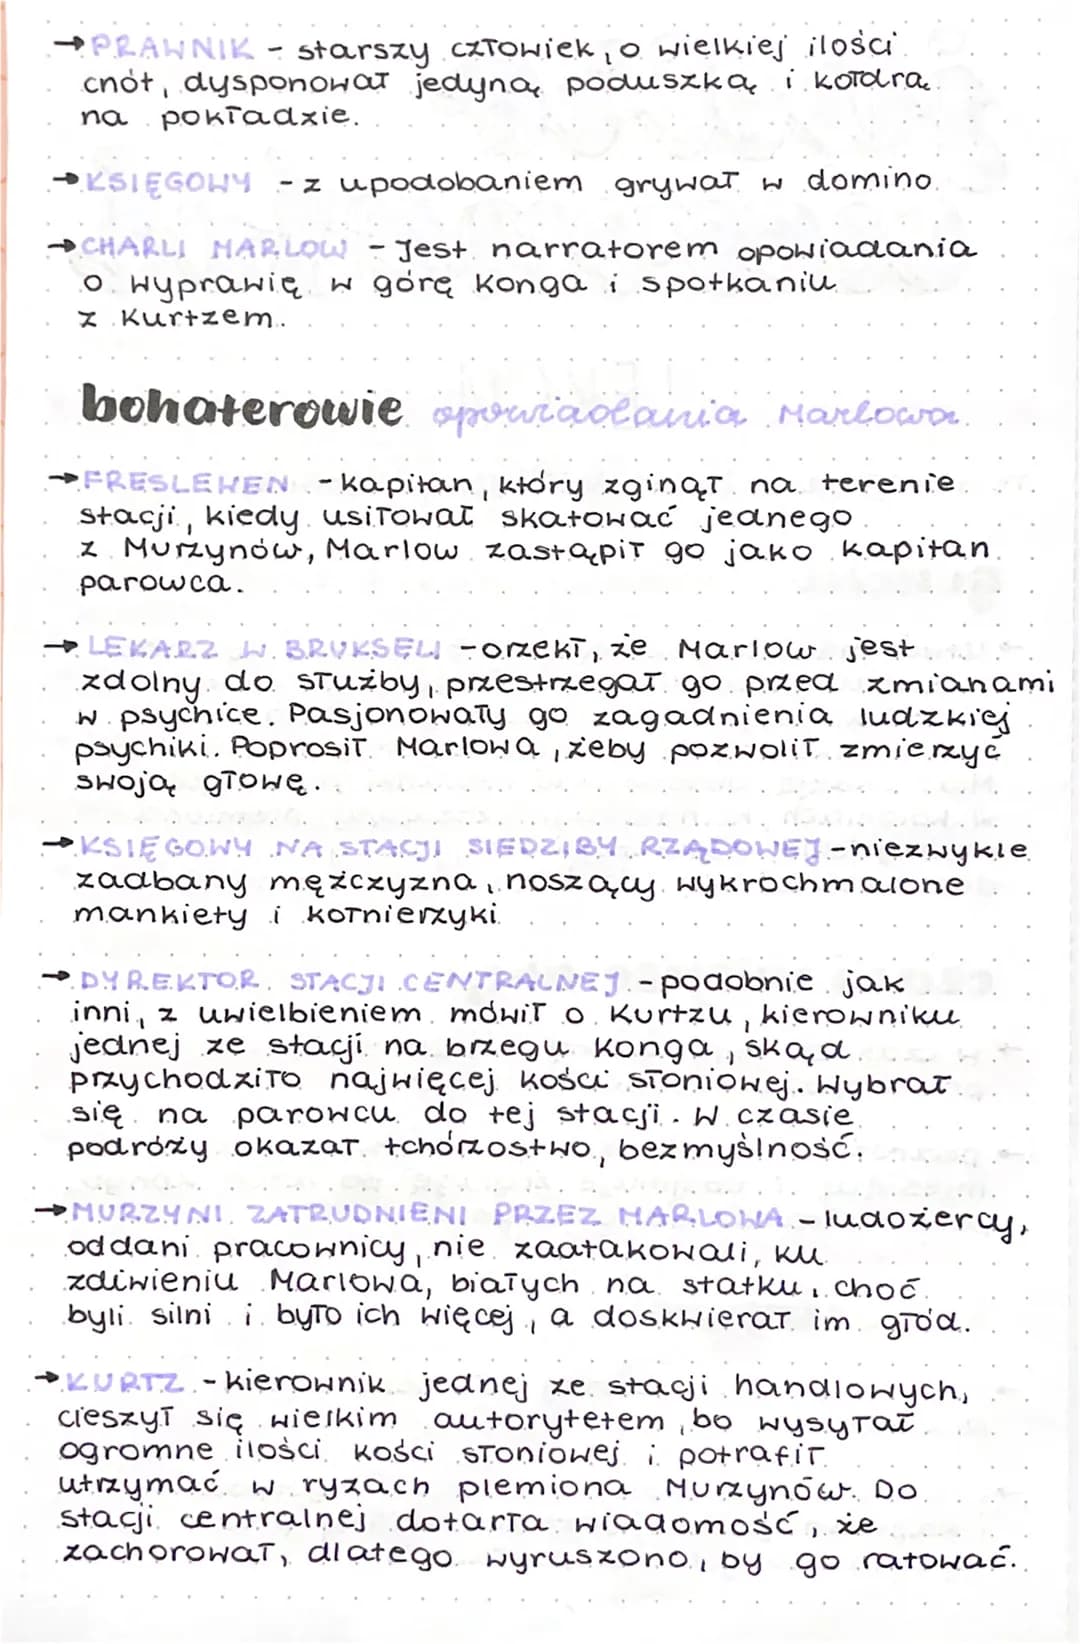 → PRAWNIK - starszy człowiek, o wielkiej ilości
cnót, dysponował jedyną poduszką i kołdrą
na pokładzie.
→ KSIĘGOWY - z upodobaniem grywał w domino
→ CHARLI MARLOW - Jest narratorem opowiadania
o wyprawię w górę Konga i spotkaniu
z Kurtzem.
bohaterowie opowiadania Marlowa
→ FRESLEWEN - kapitan, który zginął na terenie
stacji, kiedy usiłował skatować jednego
z Murzynów, Marlow zastąpił go jako kapitan
parowca.
→ LEKARZ W BRUKSELI - orzekł, że Marlow jest
zdolny do służby, przestrzegał go przed zmianami
w psychice. Pasjonowały go zagadnienia ludzkiej
psychiki. Poprosił Marlowa, żeby pozwolił zmierzyć
swoją głowę.
→ KSIĘGOWY NA STACJI SIEDZIBY RZĄDOWEJ - niezwykle
zadbany mężczyzna, noszący wykrochmalone
mankiety i kołnierzyki
→ DYREKTOR STACJI CENTRALNEJ - podobnie jak
inni, z uwielbieniem mówił o Kurtzu, kierowniku
jednej ze stacji na brzegu Konga, skąd
przychodziło najwięcej kości słoniowej. Wybrał
się na parowcu do tej stacji. W czasie
podróży okazał tchórzostwo, bezmyślność.
→ MURZYNI ZATRUDNIENI PRZEZ MARLOWA - ludożercy,
oddani pracownicy, nie zaatakowali, ku
zdiwieniu Marlowa, białych na statku, choć
byli silni i było ich więcej, a doskwierał im głód.
→ KURTZ - kierownik jednej ze stacji handlowych,
cieszył się wielkim autorytetem, bo wysyłał
ogromne ilości kości słoniowej i potrafił
utrzymać w ryzach plemiona Murzynów. Do
stacji centralnej dotarła wiadomość, że
zachorował, dlatego wyruszono, by go ratować.